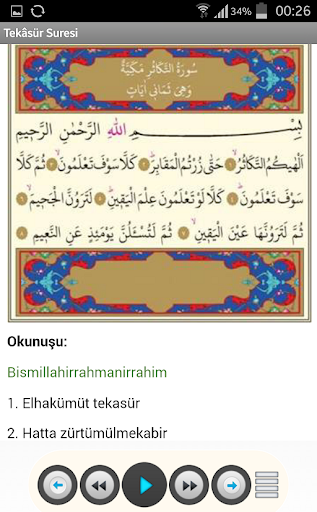 34% 00:26
Tekâsür Suresi
سُورَةُ التَّكَاثُرِ مَكِّيَّةٌ
وَهِيَ ثَمَانِي اٰيَاتٍ
بِسْــــمِ اللّٰهِ الرَّحْمٰنِ الرَّحٖيمِ
اَلْهٰيكُمُ التَّكَاثُرُۙ ١ حَتّٰى زُرْتُمُ الْمَقَابِرَۜ ٢ كَلَّا سَوْفَ تَعْلَمُونَۙ ٣ ثُمَّ كَلَّا
سَوْفَ تَعْلَمُونَۜ ٤ كَلَّا لَوْ تَعْلَمُونَ عِلْمَ الْيَقٖينِۜ ٥ لَتَرَوُنَّ الْجَحٖيمَۙ ٦
ثُمَّ لَتَرَوُنَّهَا عَيْنَ الْيَقٖينِۙ ٧ ثُمَّ لَتُسْـَٔلُنَّ يَوْمَئِذٍ عَنِ النَّعٖيمِ ٨
Okunuşu:
Bismillahirrahmanirrahim
1. Elhakümüt tekasür
2. Hatta zürtümülmekabir